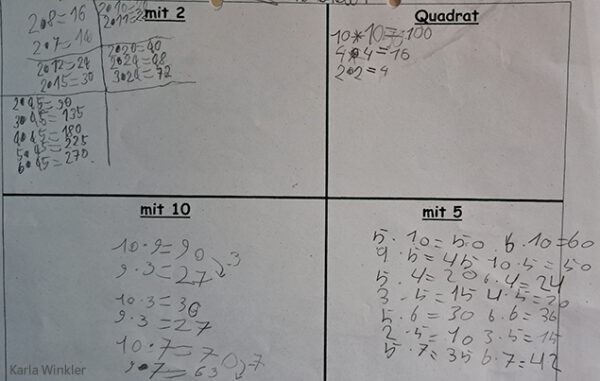 mit 2
2•8=16
2•7=14
2•12=24
2•15=30
2•10=20
2•11=22
2•20=40
2•24=48
3•24=72
2•45=90
3•45=135
4•45=180
5•45=225
6•45=270
Quadrat
10*10=100
4•4=16
2•2=4
mit 10
10·9=90
9·3=27 -3
10·3=30
9·3=27
10·7=70
9•7=63 -7
mit 5
5·10=50 6·10=60
9·5=45 10·5=50
5·4=20 6·4=24
3·5=15 4·5=20
5·6=30 6·6=36
2·5=10 3·5=15
5·7=35 6·7=42
Karla Winkler